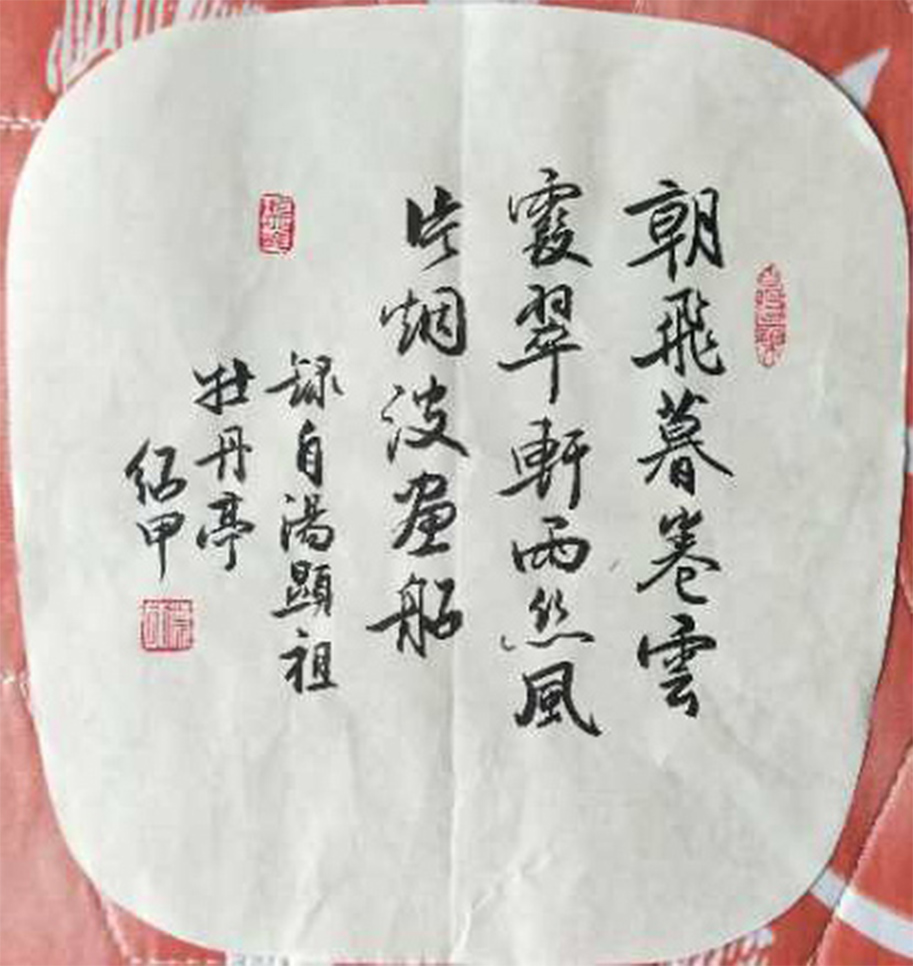 朝飛暮卷雲
霞翠軒雨絲風
片烟波畫船
錄自湯顯祖
牡丹亭
紹甲